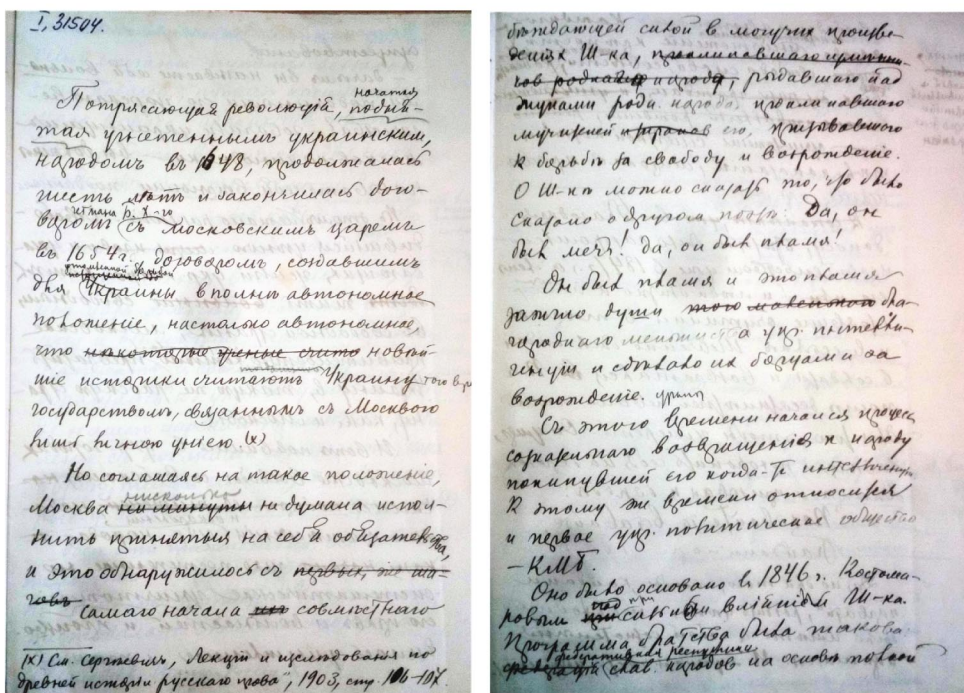 I, 31504.
Потрясающая революція, начатая поднѣ-
тая угнетеннымъ украинскимъ
народомъ въ 1648, продолжалась
шесть лѣтъ и закончилась дого-
воромъ гетмана Б. Х-го съ Московскимъ царемъ
въ 1654 г. договоромъ, создавшимъ
для Украины вполнѣ автономное
положеніе, настолько автономное,
что некоторые ученые счита новѣй-
шіе историки считаютъ Украину того вр.
государствомъ, связаннымъ съ Москвою
лишь личною уніею. (х)
Но соглашаясь на такое положеніе,
Москва ни минуты нисколько не думала испол-
нить принятыя на себя обязательства,
и это обнаружилось съ первыхъ же ша-
говъ самаго начала совмѣстнаго
(х) См. Сергѣевичъ, Лекціи и изслѣдованія по
древней исторіи русскаго права", 1903, стр. 106-107.
бѣждающей силой в могучих произве-
дениях Ш-ка,
рыдавшаго над
муками родн. народа, проклинавшаго
мучителей и тиранов его, призывавшаго
к борьбѣ за свободу и возрождение.
О Ш-кѣ можно сказать то, что было
сказано о другом поэтѣ: Да, он
был меч! да, он был пламя!
Он был пламя и это пламя
зажгло души того бла-
городнаго меньшинства укр. интелли-
генции и сделало их борцами за
возрождение Украины.
Съ этого времени начался процесс
возвращения к народу
покинувшей его когда-то интеллигенции.
К этому же времени относится
и первое укр. политическое общество
– КМБ.
Оно было основано в 1846 г. Костома-
ровым под при влиянии Ш-ка.
Программа братства была такова:
федеративная республика
слав. народов на основѣ полной